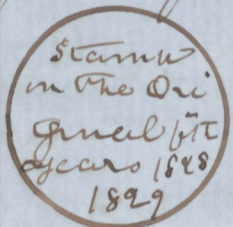 Stamp
in the Ori
ginal for
years 1828
1829